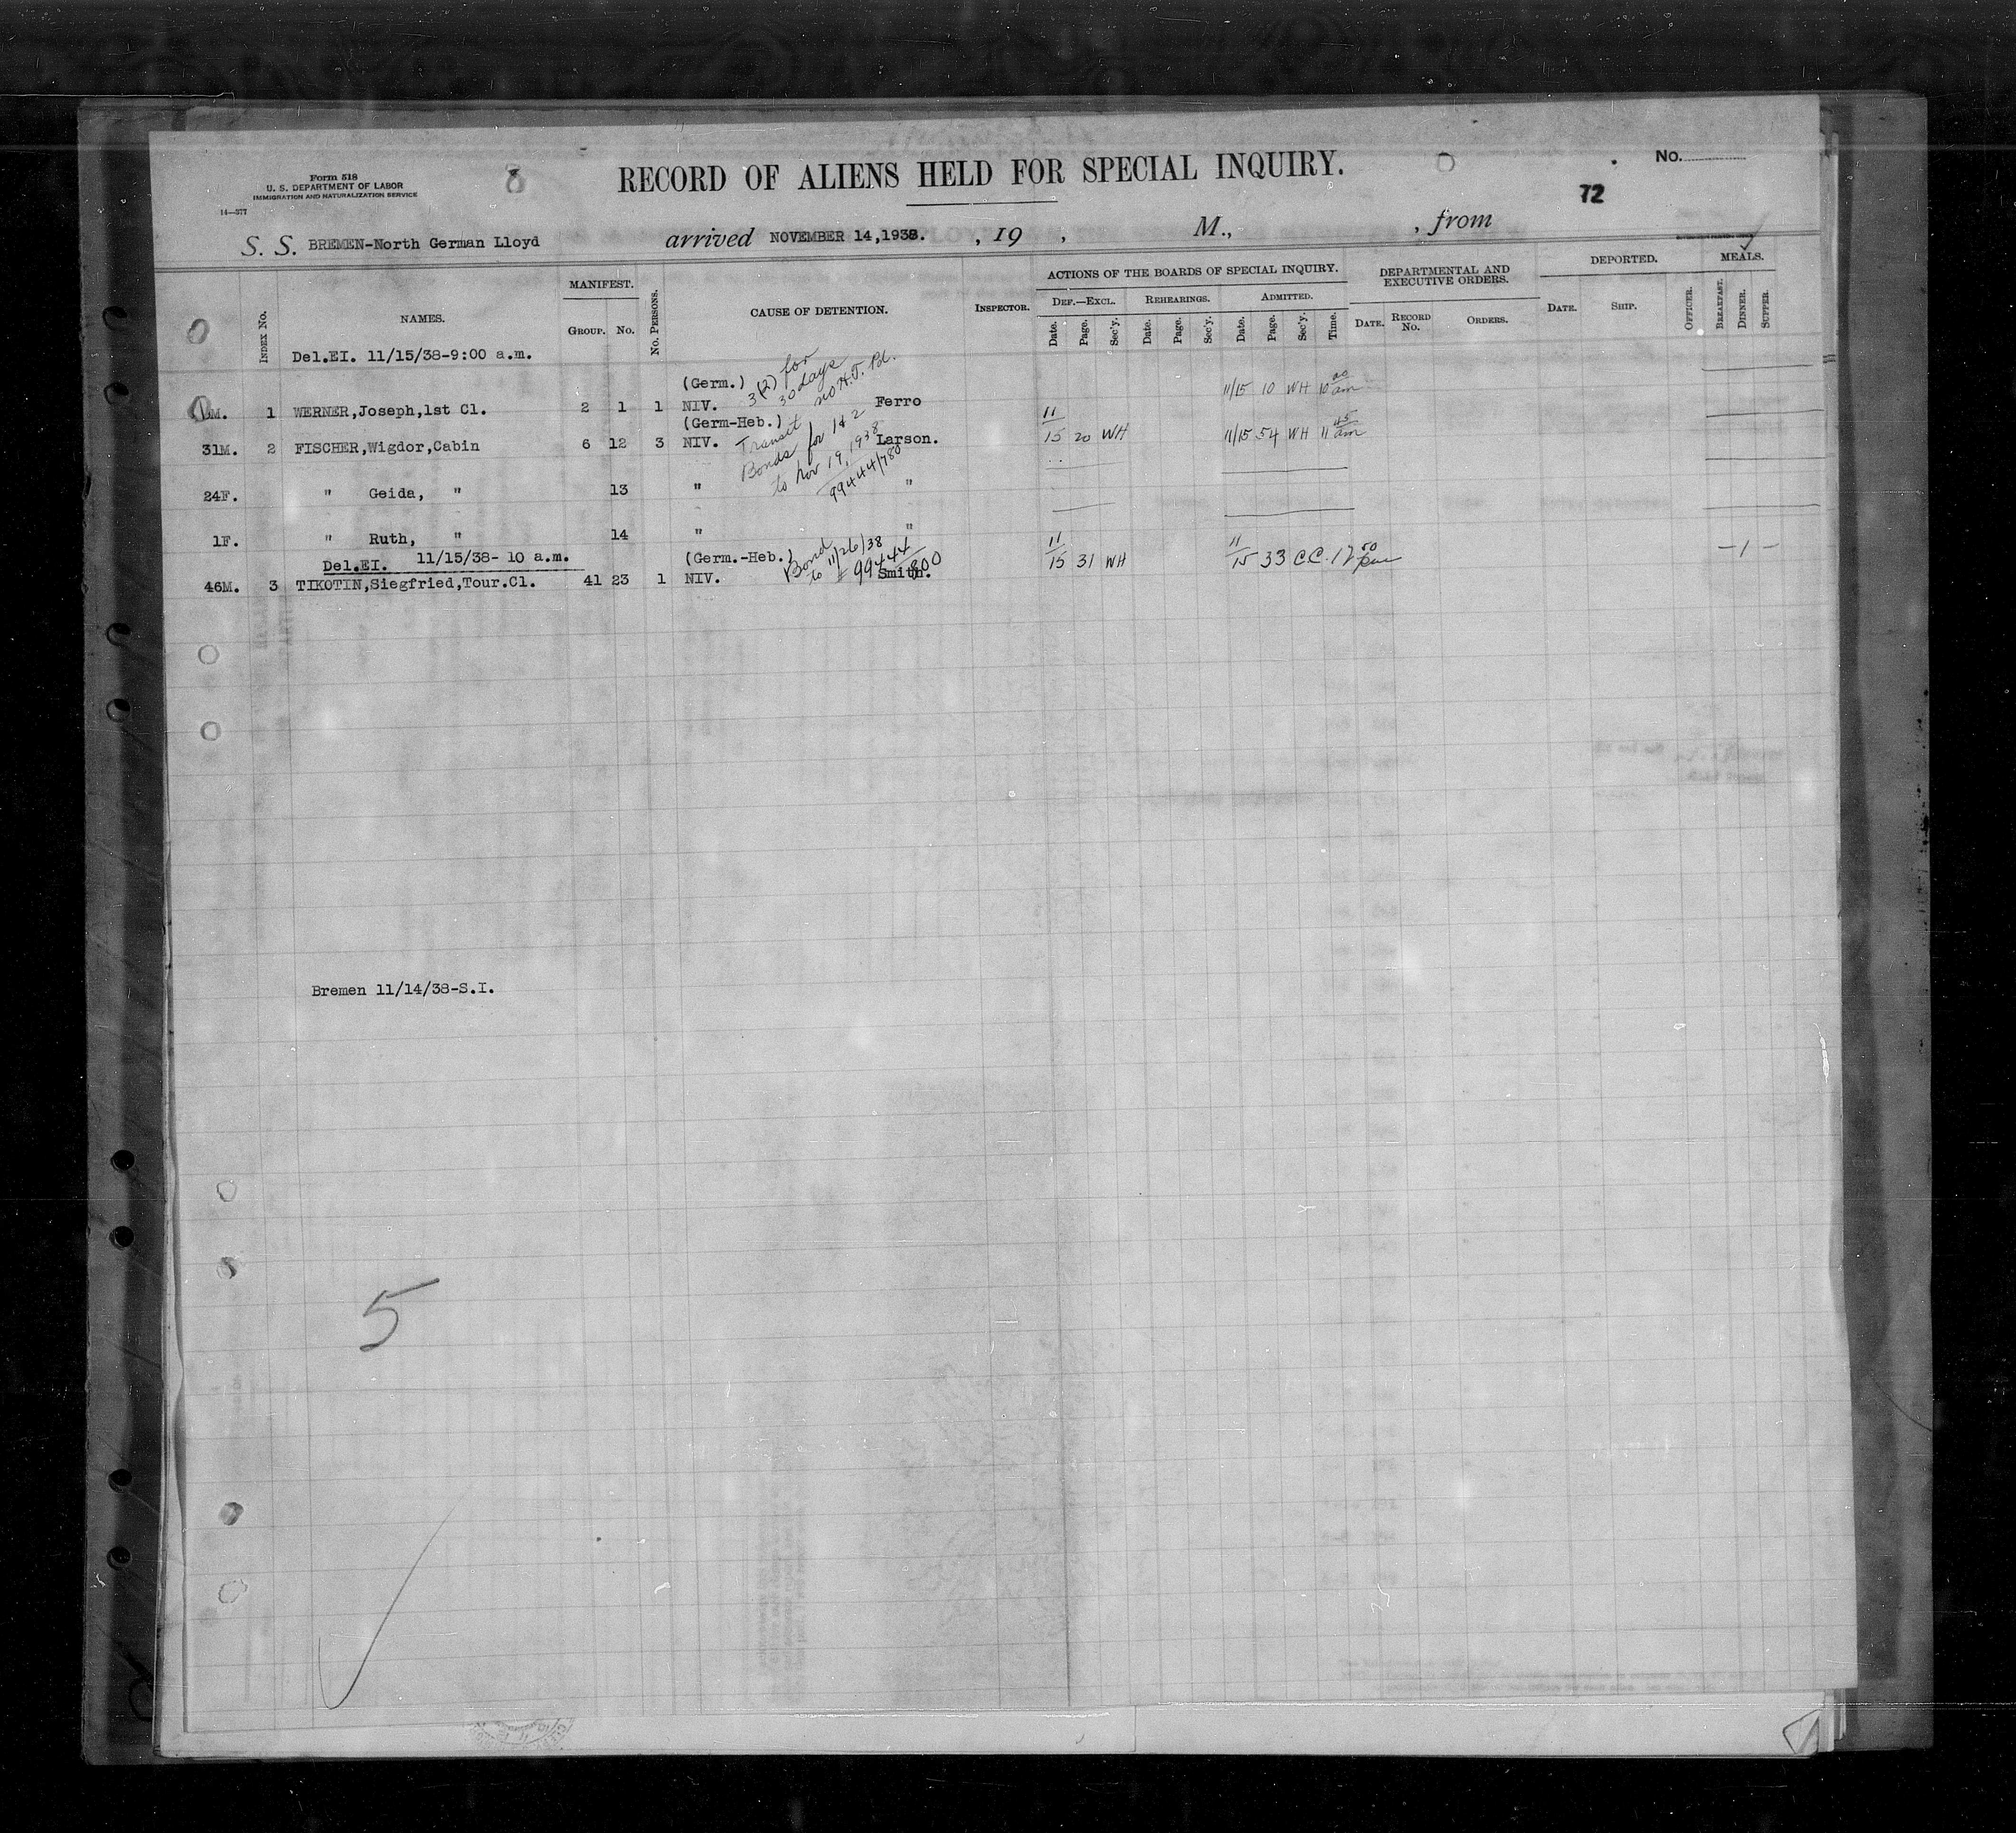 Form 518
U. S. DEPARTMENT OF LABOR
IMMIGRATION AND NATURALIZATION SERVICE
14—377
8
RECORD OF ALIENS HELD FOR SPECIAL INQUIRY.
No.
72
S. S. BREMEN-North German Lloyd arrived NOVEMBER 14,1938. , 19 , M., , from
INDEX No. NAMES. MANIFEST. GROUP. No. No. PERSONS. CAUSE OF DETENTION. INSPECTOR. ACTIONS OF THE BOARDS OF SPECIAL INQUIRY. DEF.—EXCL. Date. Page. Sec'y. REHEARINGS. Date. Page. Sec'y. ADMITTED. Date. Page. Sec'y. Time. DEPARTMENTAL AND EXECUTIVE ORDERS. DATE. RECORD No. ORDERS. DEPORTED. DATE. SHIP. OFFICER. MEALS. BREAKFAST. DINNER. SUPPER.
Del.EI. 11/15/38-9:00 a.m.
(Germ.) 3(2) for 30 days no H.T. Pd.
M. 1 WERNER,Joseph,1st Cl. 2 1 1 NIV. Ferro 11/15 10 WH 10 00 am
(Germ-Heb.) Transit Bonds for 1 & 2 to Nov 19, 1938 99444/780
31M. 2 FISCHER,Wigdor,Cabin 6 12 3 NIV. Larson. 11/15 20 WH 11/15 54 WH 11 45 am
24F. " Geida, " 13 " "
1F. " Ruth, " 14 " "
Del.EI. 11/15/38- 10 a.m. (Germ.-Heb.) Bond to 11/26/38 99444/800
46M. 3 TIKOTIN,Siegfried,Tour.Cl. 41 23 1 NIV. Smith. 11/15 31 WH 11/15 33 CC. 12 50 pm — 1 —
Bremen 11/14/38-S.I.
5